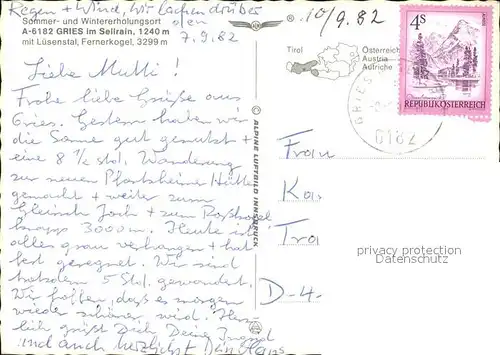 Regen + Wind, wir lachen drüber
Sommer- und Wintererholungsort
A-6182 GRIES im Sellrain, 1240 m
mit Lüsenstal, Fernerkogel, 3299 m
den
7.9.82
10/9.82
Tirol
Österreich
Austria
Autriche
4S
REPUBLIK ÖSTERREICH
GRIES
6182
Liebe Mutti!
Frohe liebe Grüße aus
Gries. Gestern haben wir
die Sonne gut genutzt +
eine 8 ½ Std. Wanderung
zur neuen Pforzheimer Hütte
gemacht + weiter zum
Gleirsch Joch + zum Roßkogel
knapp 3000 m. Heute ist
alles grau verhangen + hat
fest geregnet. Wir sind
trotzdem 5 Std. gewandert.
Wir hoffen, daß es morgen
wieder schöner wird. Herz-
lich grüßt Dich Deine
und auch herzlichst Dein Hans
© ALPINE LUFTBILD INNSBRUCK
Frau
Kas
Tra
D-4.
privacy protection
Datenschutz